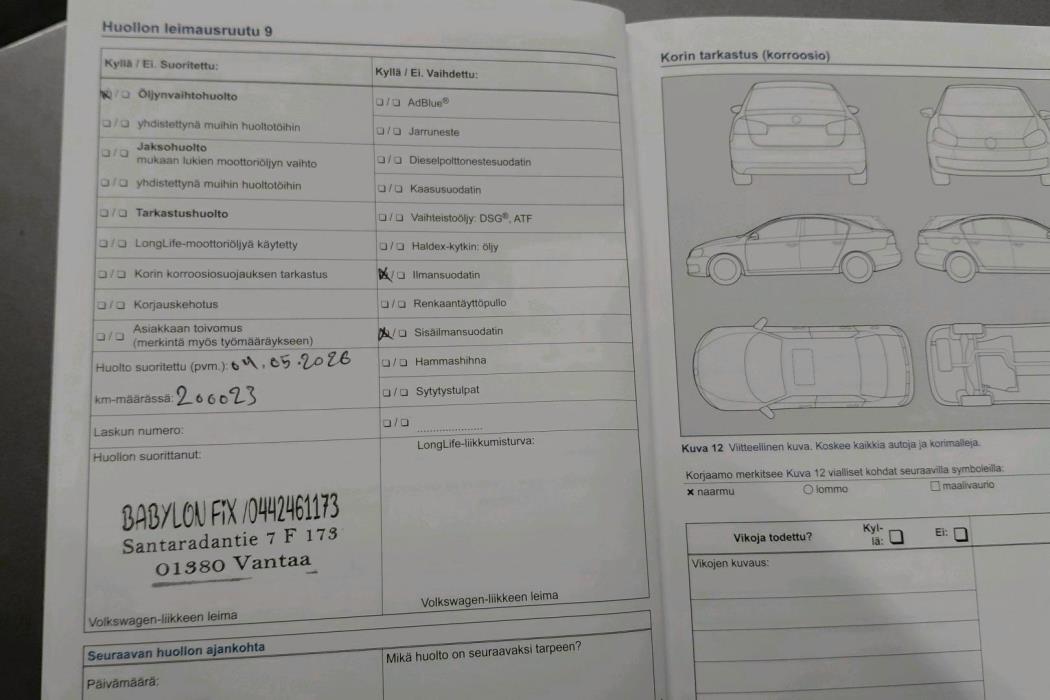 Huollon leimausruutu 9
Kyllä / Ei. Suoritettu:
Öljynvaihtohuolto
yhdistettynä muihin huoltotöihin
Jaksohuolto
mukaan lukien moottoriöljyn vaihto
yhdistettynä muihin huoltotöihin
Tarkastushuolto
LongLife-moottoriöljyä käytetty
Korin korroosiosuojauksen tarkastus
Korjauskehotus
Asiakkaan toivomus
(merkintä myös työmääräykseen)
Huolto suoritettu (pvm.): 04.05.2026
km-määrässä: 200023
Laskun numero:
Huollon suorittanut:
BABYLON FiX /0442461173
Santaradantie 7 F 173
01380 Vantaa
Volkswagen-liikkeen leima
Kyllä / Ei. Vaihdettu:
AdBlue®
Jarruneste
Dieselpolttonestesuodatin
Kaasusuodatin
Vaihteistoöljy: DSG®, ATF
Haldex-kytkin: öljy
Ilmansuodatin
Renkaantäyttöpullo
Sisäilmansuodatin
Hammashihna
Sytytystulpat
LongLife-liikkumisturva:
Volkswagen-liikkeen leima
Seuraavan huollon ajankohta
Päivämäärä:
Mikä huolto on seuraavaksi tarpeen?
Korin tarkastus (korroosio)
Kuva 12 Viitteellinen kuva. Koskee kaikkia autoja ja korimalleja.
Korjaamo merkitsee Kuva 12 vialliset kohdat seuraavilla symboleilla:
naarmu lommo maalivaurio
Vikoja todettu? Kyl-
lä: Ei:
Vikojen kuvaus: